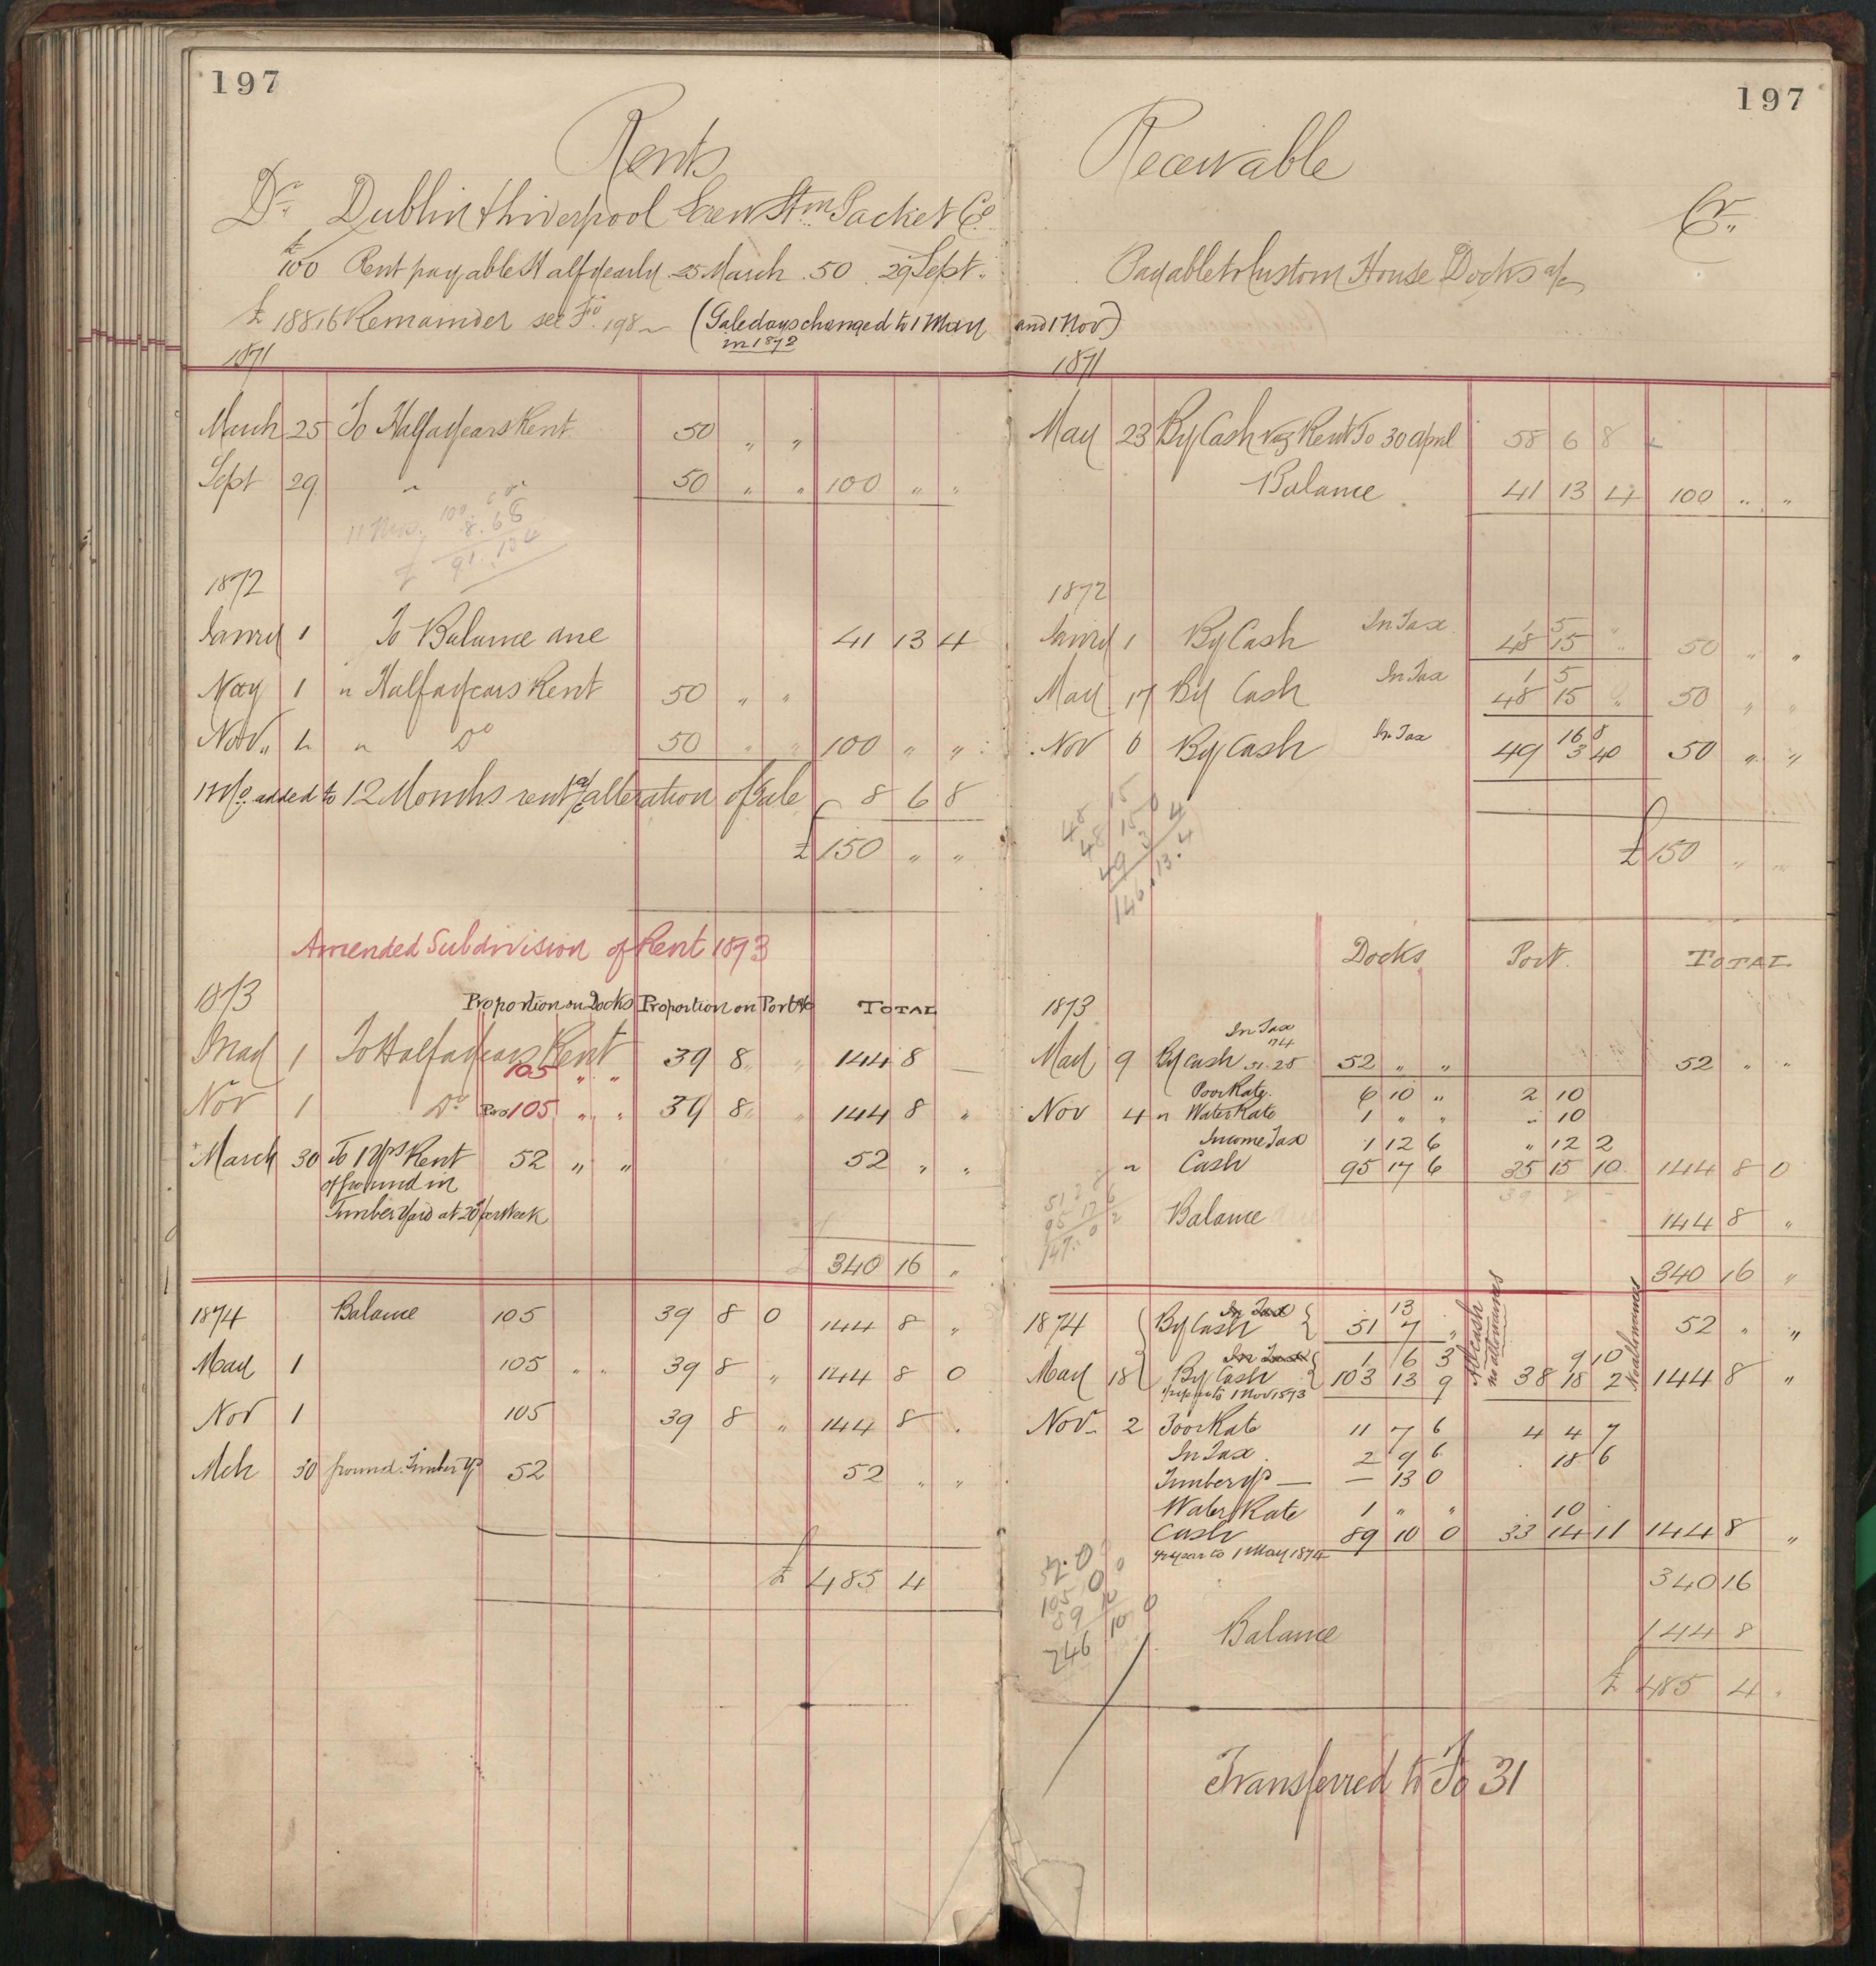 197
Rents
Dr. Dublin & Liverpool Screw Stm Packet Co
£100 Rent payable Half Yearly 25 March . 50 . 29 Sept.
£188 16 Remainder see Fo. 198 (Gale days changed to 1 May
in 1872
1871
March 25 To Half a years Rent 50 " "
Sept 29 " 50 " " 100 " "
1872
Janry 1 To Balance due 41 13 4
May 1 " Half a years Rent 50 " "
Nov. 1 " Do 50 " " 100 " "
1 Mo. added to 12 Months rent a/c alteration of Gale 8 6 8
£ 150 " "
Amended Subdivision of Rent 1873
1873 Proportion on Docks Proportion on Port a/c TOTAL
May 1 To Half a years Rent 105 " " 39 8 " 144 8
Nov 1 Do 105 " " 39 8 " 144 8 "
March 30 To 1 Yrs Rent 52 " " 52 " "
of ground in
Timber Yard at 20/ per Week
340 16 "
1874 Balance 105 39 8 0 144 8 "
May 1 105 " " 39 8 " 144 8 0
Nov 1 105 39 8 " 144 8 .
Mch 30 ground Timber Yd 52 52 " "
£ 485 4
197
Receivable
Cr.
Payable to Custom House Docks a/c
and 1 Nov)
1871
May 23 By Cash Rent To 30 April 58 6 8
Balance 41 13 4 100 " "
1872
In Tax 1 5 "
Janry 1 By Cash 48 15 " 50 " "
In Tax 1 5
May 17 By Cash 48 15 " 50 " "
In Tax 16 8
Nov 6 By Cash 49 3 4 50 " "
48 15 0
48 15 0
49 3 4
146.13.4
£ 150 " "
Docks Port TOTAL
1873
In Tax
May 9 By Cash 52 " " 52 " "
Poor Rate. 6 10 " 2 10
Nov 4 " Water Rate 1 " " " 10
Income Tax 1 12 6 " 12 2
" Cash 95 17 6 35 15 10 144 8 0
39 8
Balance 144 8 "
340 16 "
1874 In Tax 13
By Cash 51 7 " 52 " "
In Tax 1 6 3 9 10
May 18 By Cash 103 13 9 38 18 2 144 8 "
1 Nov 1873
no allowances
No allowances
Nov. 2 Poor Rate 11 7 6 4 4 7
In Tax 2 9 6 18 6
Timber Yd — — 13 0
Water Rate 1 " " 10
Cash 89 10 0 33 14 11 144 8 "
year to 1 May 1874
340 16
Balance 144 8
£ 485 4
Transferred to Fo 31